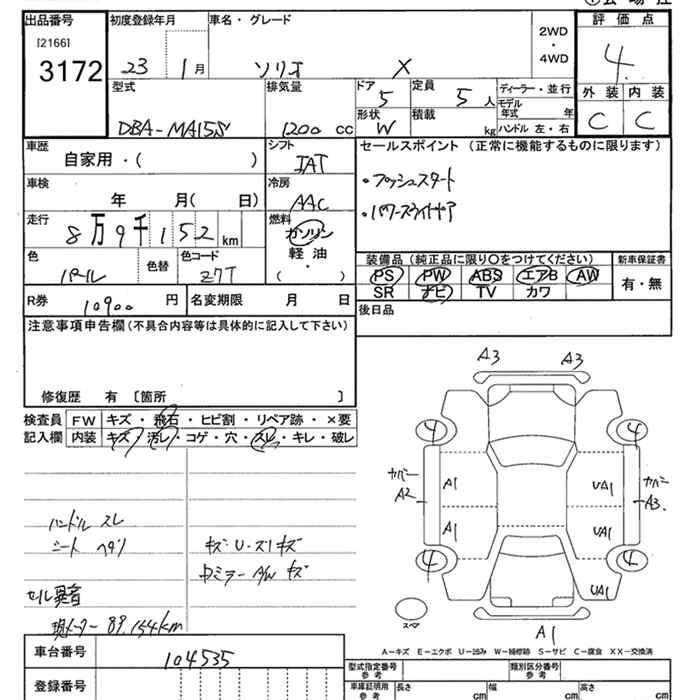 出品番号 初度登録年月 車名・グレード 評価点
[2166]
3172 23 1月 ソリオ X 2WD・4WD 4
型式 排気量 ドア 5 定員 5人 ディーラー・並行 外装 内装
DBA-MA15S 1200 cc 形状 W 積載 kg モデル年式 年 C C
ハンドル 左・右
車歴 自家用・( ) シフト IAT セールスポイント (正常に機能するものに限ります)
車検 年 月( 日) 冷房 AAC ・プッシュスタート
走行 8万9千152km 燃料 ガソリン・軽油・( ) ・パワースライドドア
色 パール 色替 色コード Z7T
装備品(純正品に限り○をつけてください) 新車保証書
PS PW ABS エアB AW 有・無
SR ナビ TV カワ
R券 10900 円 名変期限 月 日 後日品
注意事項申告欄(不具合内容等は具体的に記入して下さい)
修復歴 有 〔箇所 〕
検査員 FW キズ・飛石・ヒビ割・リペア跡・×要
記入欄 内装 キズ・汚レ・コゲ・穴・スレ・キレ・破レ
ハンドル スレ
シート ヘタリ
キズ・U・ズリキズ
ミラー A/W キズ
セル異音
現メーター 89,154km
A3 A3
4 4
カバー A2 A1 UA1 カバー A3
A1 UA1
4 4
UA1
スペア
A1
A-キズ E-エクボ U-凹み W-補修跡 S-サビ C-腐食 XX-交換済
車台番号 104535 型式指定番号 参考 類別区分番号 参考
登録番号 車庫証明用 参考 長さ cm 幅 cm 高さ cm